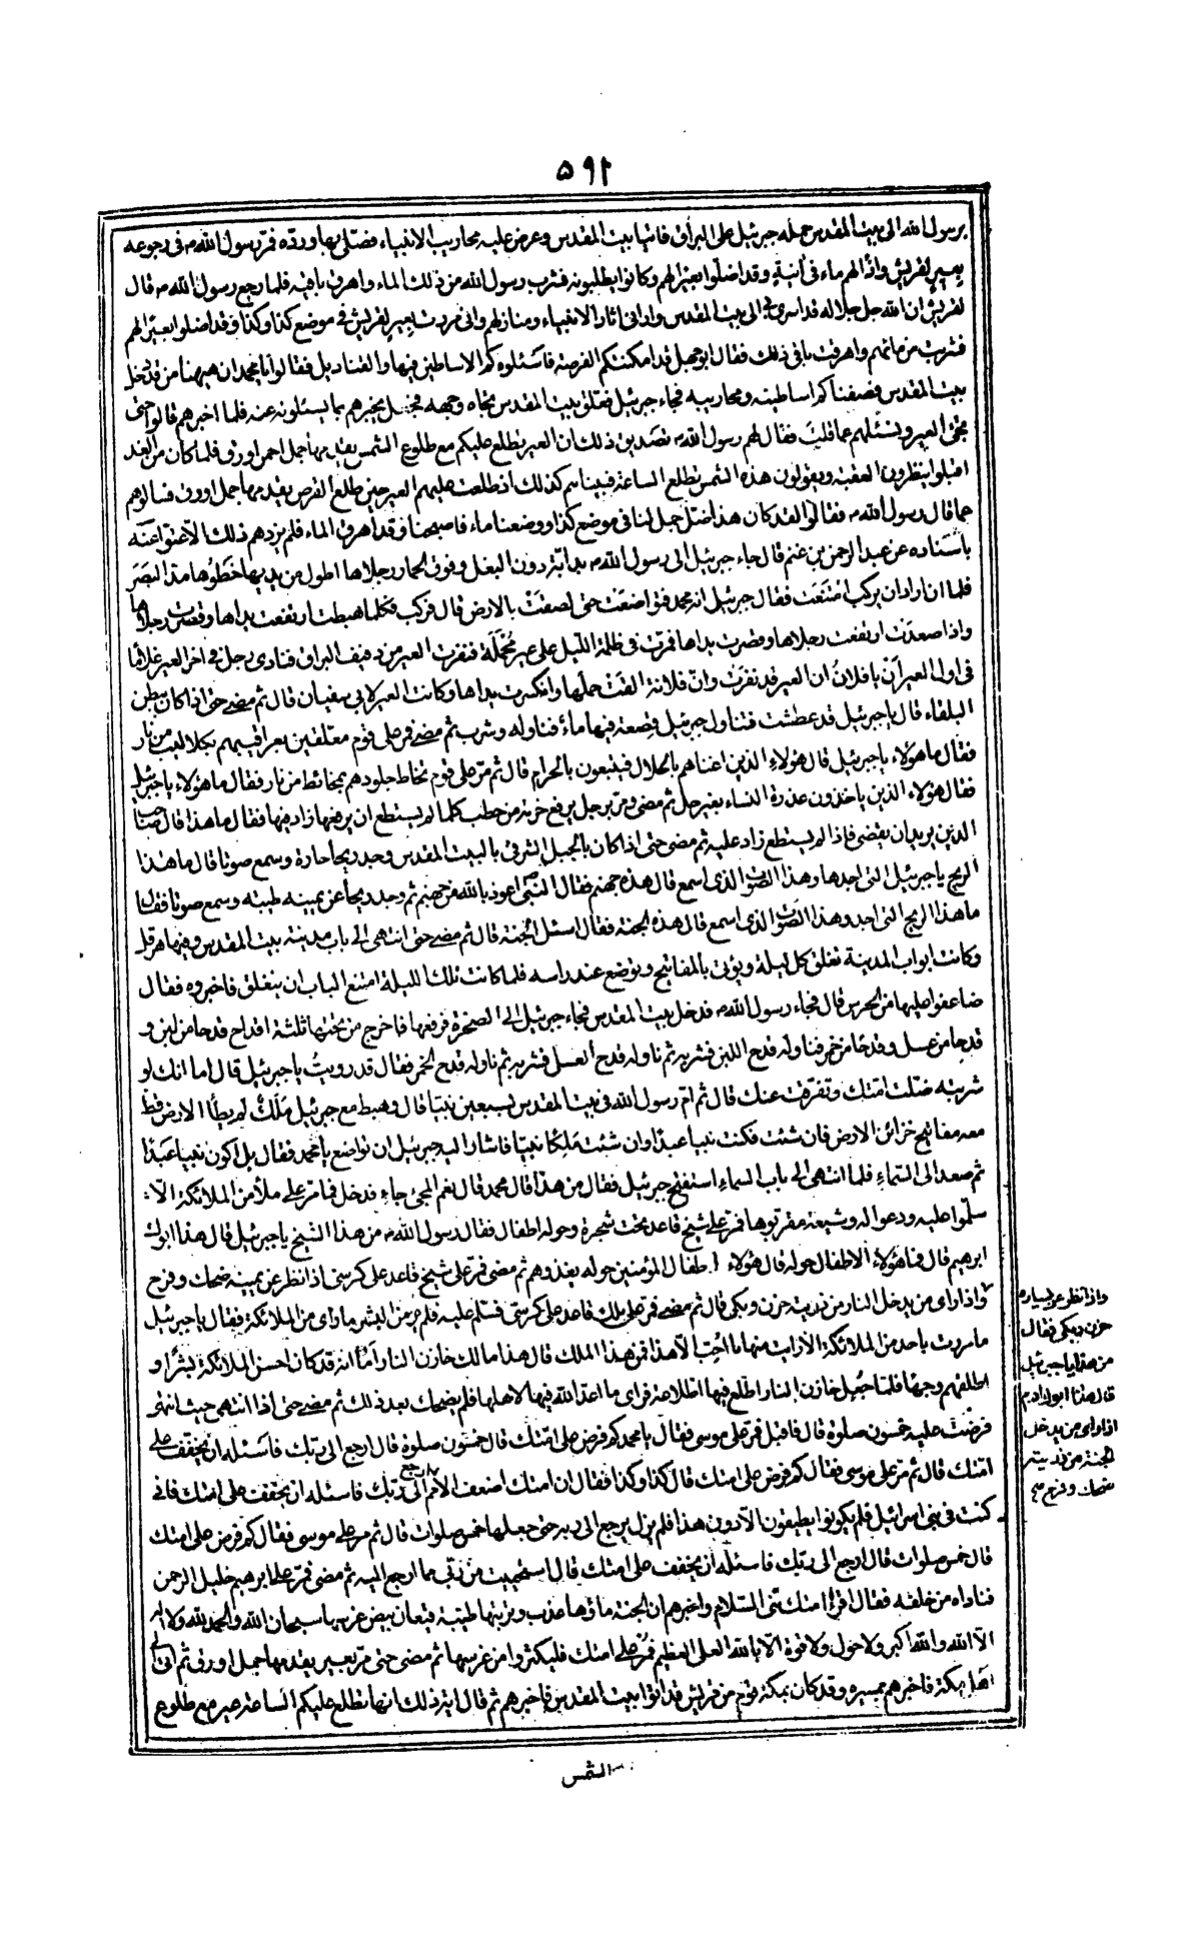 ٥٩٢
برسول الله الى بيت المقدس حمله جبرئيل على البراق فاتيا بيت المقدس وعرض عليه محاريب الانبياء فصلى بها ورده فمر رسول الله ص فى رجوعه
بعير لقريش واذا لهم ماء فى انية وقد اضلوا بعيرا لهم وكانوا يطلبونه فشرب رسول الله من ذلك الماء واهرق باقيه فلما رجع رسول الله ص قال
لقريش ان الله جل جلاله قد اسرى بى الى بيت المقدس وارانى اثار الانبياء ومنازلهم وانى مررت بعير لقريش فى موضع كذا وكذا وقد اضلوا بعيرا لهم
فشربت من مائهم واهرقت باقى ذلك فقال ابو جهل قد امكنتكم الفرصة فاسئلوه كم الاساطين فيها والقناديل فقالوا يا محمد ان هيهنا من قد دخل
بيت المقدس فصف لنا كم اساطينه ومحاريبه فجاء جبرئيل فعلق بيت المقدس تجاه وجهه فجعل يخبرهم بما يسئلونه عنه فلما اخبرهم قالوا حتى
يجئ العير ونسئلهم عما قلت فقال لهم رسول الله ص تصديق ذلك ان العير يطلع عليكم مع طلوع الشمس يقدمها جمل احمر اورق فلما كان من الغد
اقبلوا ينظرون العقبة ويقولون هذه الشمس تطلع الساعة فبيناهم كذلك اذ طلعت عليهم العير حين طلع القرص يقدمها جمل اورق فسالوهم
عما قال رسول الله ص فقالوا لقد كان هذا ضل جمل لنا فى موضع كذا ووضعنا ماء فاصبحنا وقد اهرق الماء فلم يزدهم ذلك الا عتوا عنه
باسناده عن عبد الرحمن بن غنم قال جاء جبرئيل الى رسول الله ص بدابة دون البغل وفوق الحمار رجلاها اطول من يديها خطوها مد البصر
فلما ان اراد ان يركب امتنعت فقال جبرئيل انه محمد فتواضعت حتى لصقت بالارض قال فركب فكلما هبطت ارتفعت يداها وقصرت رجلاها
واذا صعدت ارتفعت رجلاها وقصرت يداها فمرت فى ظلمة الليل على عير محملة فنفرت العير من دفيف البراق فنادى رجل فى اخر العير غلاما
فى اول العير ان يا فلان ان العير قد نفرت وان فلانة القت حملها وانكسرت يداها وكانت العير لابى سفيان قال ثم مضى حتى اذا كان ببطن
البلقاء قال يا جبرئيل قد عطشت فتناول جبرئيل قصعة فيها ماء فناوله وشرب ثم مضى فمر على قوم معلقين بعراقيبهم بكلاليب من نار
فقال ما هؤلاء يا جبرئيل قال هؤلاء الذين اغناهم بالحلال فيتبعون بالحرام قال ثم مر على قوم تخاط جلودهم بمخائط من نار فقال ما هؤلاء يا جبرئيل
فقال هؤلاء الذين ياخذون عذرة النساء بغير حل ثم مضى ومر برجل يرفع حزمة من حطب كلما لم يستطع ان يرفعها زاد فيها فقال ما هذا قال هذا صاحب
الدين يريد ان يقضى فاذا لم يستطع زاد عليه ثم مضى حتى اذا كان بالجبل الشرقى بالبيت المقدس وجد ريحا حارة وسمع صوتا قال ما هذا
الريح يا جبرئيل التى اجدها وهذا الصوت الذى اسمع قال هذه جهنم فقال النبى ص اعوذ بالله من جهنم ثم وجد ريحا عن يمينه طيبة وسمع صوتا فقال
ما هذا الريح التى اجد وهذا الصوت الذى اسمع قال هذه الجنة فقال اسئل الجنة قال ثم مضى حتى انتهى الى باب مدينة بيت المقدس وفيها هرقل
وكانت ابواب المدينة تغلق كل ليلة ويؤتى بالمفاتيح وتوضع عند راسه فلما كانت تلك الليلة امتنع الباب ان ينغلق فاخبروه فقال
ضاعفوا عليها من الحرس قال فجاء رسول الله ص فدخل بيت المقدس فجاء جبرئيل الى الصخرة فرفعها فاخرج من تحتها ثلثة اقداح قدحا من لبن و
قدحا من عسل وقدحا من خمر فناوله قدح اللبن فشربه ثم ناوله قدح العسل فشربه ثم ناوله قدح الخمر فقال قد رويت يا جبرئيل قال اما انك لو
شربته ضلت امتك وتفرقت عنك قال ثم ام رسول الله فى بيت المقدس بسبعين نبيا قال وهبط مع جبرئيل ملك لم يطأ الارض قط
معه مفاتيح خزائن الارض فان شئت فكنت نبيا عبدا وان شئت ملكا نبيا فاشار اليه جبرئيل ان تواضع يا محمد فقال بل اكون نبيا عبدا
ثم صعد الى السماء فلما انتهى الى باب السماء استفتح جبرئيل فقال من هذا قال محمد قال نعم المجئ جاء فدخل فما مر على ملأ من الملائكة الا
سلموا عليه ودعوا له وشيعه مقربوها فمر على شيخ قاعد تحت شجرة وحوله اطفال فقال رسول الله ص من هذا الشيخ يا جبرئيل قال هذا ابوك
ابرهيم قال فما هؤلاء الاطفال حوله قال هؤلاء اطفال المؤمنين حوله يغذوهم ثم مضى فمر على شيخ قاعد على كرسى اذا نظر عن يمينه ضحك وفرح
واذا راى من يدخل النار من ذريته حزن وبكى قال ثم مضى فمر على ملك قاعد على كرسى فسلم عليه فلم ير من البشر ما راى من الملائكة فقال يا جبرئيل
ما مررت باحد من الملائكة الا رايت منه ما احب الا هذا فمن هذا الملك قال هذا مالك خازن النار اما انه قد كان احسن الملائكة بشرا و
اطلقهم وجها فلما جعل خازن النار اطلع فيها اطلاعة فراى ما اعد الله فيها لاهلها فلم يضحك بعد ذلك ثم مضى حتى اذا انتهى حيث انتهى
فرضت عليه خمسون صلوة قال فاقبل فمر على موسى فقال يا محمد كم فرض على امتك قال خمسون صلوة قال ارجع الى ربك فاسئله ان يخفف على
امتك قال ثم مر على موسى فقال كم فرض على امتك قال كذا وكذا فقال ان امتك اضعف الامم ارجع الى ربك فاسئله ان يخفف على امتك فانى
كنت فى بنى اسرائيل فلم يكونوا يطيقون الا دون هذا فلم يزل يرجع الى ربه حتى جعلها خمس صلوات قال ثم مر على موسى فقال كم فرض على امتك
قال خمس صلوات قال ارجع الى ربك فاسئله ان يخفف على امتك قال استحييت من ربى مما ارجع اليه ثم مضى فمر على ابرهيم خليل الرحمن
فناداه من خلفه فقال اقرأ امتك عنى السلام واخبرهم ان الجنة ماؤها عذب وتربتها طيبة قيعان بيض غرسها سبحان الله والحمد لله ولا اله
الا الله والله اكبر ولا حول ولا قوة الا بالله العلى العظيم فمر على امتك فليكثروا من غرسها ثم مضى حتى مر بعير يقدمها جمل اورق ثم اتى
اهل مكة فاخبرهم بمسيره وقد كان بمكة قوم من قريش قد اتوا بيت المقدس فاخبرهم ثم قال اية ذلك انها تطلع عليكم الساعة عير مع طلوع
واذا نظر عن يساره
حزن وبكى فقال
من هذا يا جبرئيل
قال هذا ابوك ادم
اذا راى من يدخل
الجنة من ذريته
ضحك وفرح صح
الشمس